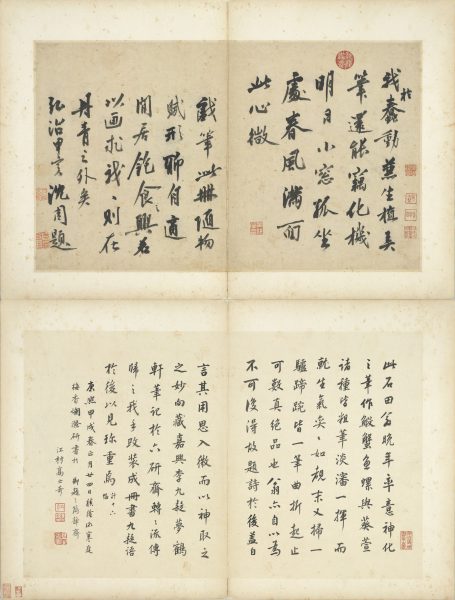 我於蠢動兼生植弄
筆還能竊化機
明日小窗孤坐
處春風滿面
此心微
戲筆此冊隨物
賦形聊自適
閒居飽食之興若
以画求我我則在
丹青之外矣
弘治甲寅沈周題
此石田翁晚年率意神化
之筆作蝦蟹魚螺與葵萱
諸種皆粗筆淡瀋一揮而
就生氣奕奕如覩末又掃一
驢蹄踠皆一筆曲折起止
可數真絕品也翁亦自以為
不可復得故題詩於後蓋自
言其用思入微而以神取之
之妙向藏嘉興李九疑夢鶴
軒筆記於六研齋轉轉流傳
歸之我手改裝成冊書九疑語
於後以見珍重焉計十六幅
康熙甲戌春正月廿四日積陰寒夜
梅香爛漫研書於 御題之簡靜齋
江村高士奇